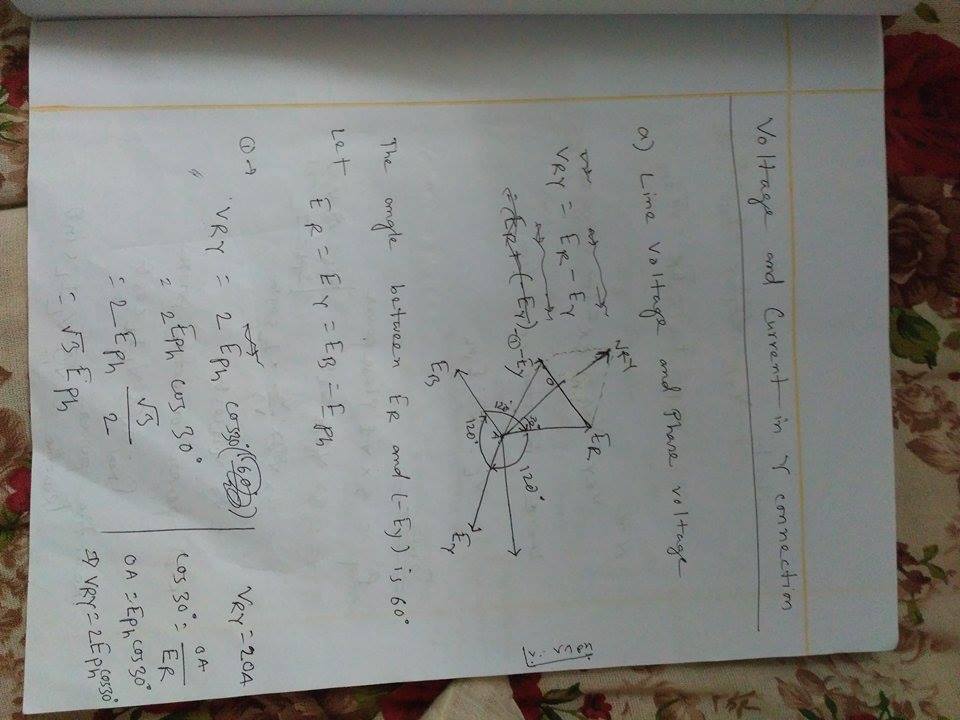 Voltage and Current in Y connection
a) Line Voltage and Phase voltage
VRY
ER
VRY = ER - EY
= ER + (-EY) -①
-EY
O
30°
120°
120°
A
120°
EY
EB
The angle between ER and (-Ey) is 60°
Let
ER = EY = EB = Eph
① →
VRY = 2 Eph cos30°
= 2Eph cos 30°
= 2 Eph √3/2
= √3 Eph
VRY = 2OA
cos 30° = OA/ER
OA = Eph cos 30°
⇒ VRY = 2Eph cos30°